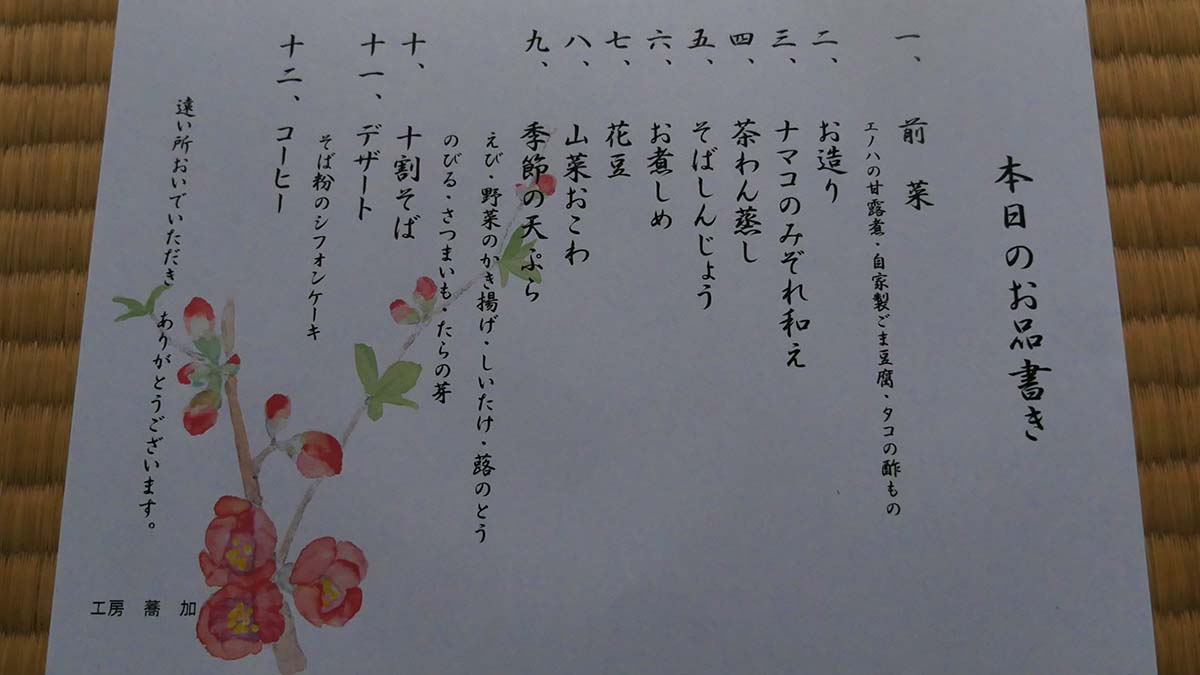 本日のお品書き
一、 前 菜
エノハの甘露煮・自家製ごま豆腐・タコの酢もの
二、 お造り
三、 ナマコのみぞれ和え
四、 茶わん蒸し
五、 そばしんじょう
六、 お煮しめ
七、 花豆
八、 山菜おこわ
九、 季節の天ぷら
えび・野菜のかき揚げ・しいたけ・蕗のとう
のびる・さつまいも・たらの芽
十、 十割そば
十一、 デザート
そば粉のシフォンケーキ
十二、 コーヒー
遠い所おいでいただき ありがとうございます。
工房 蕎 加